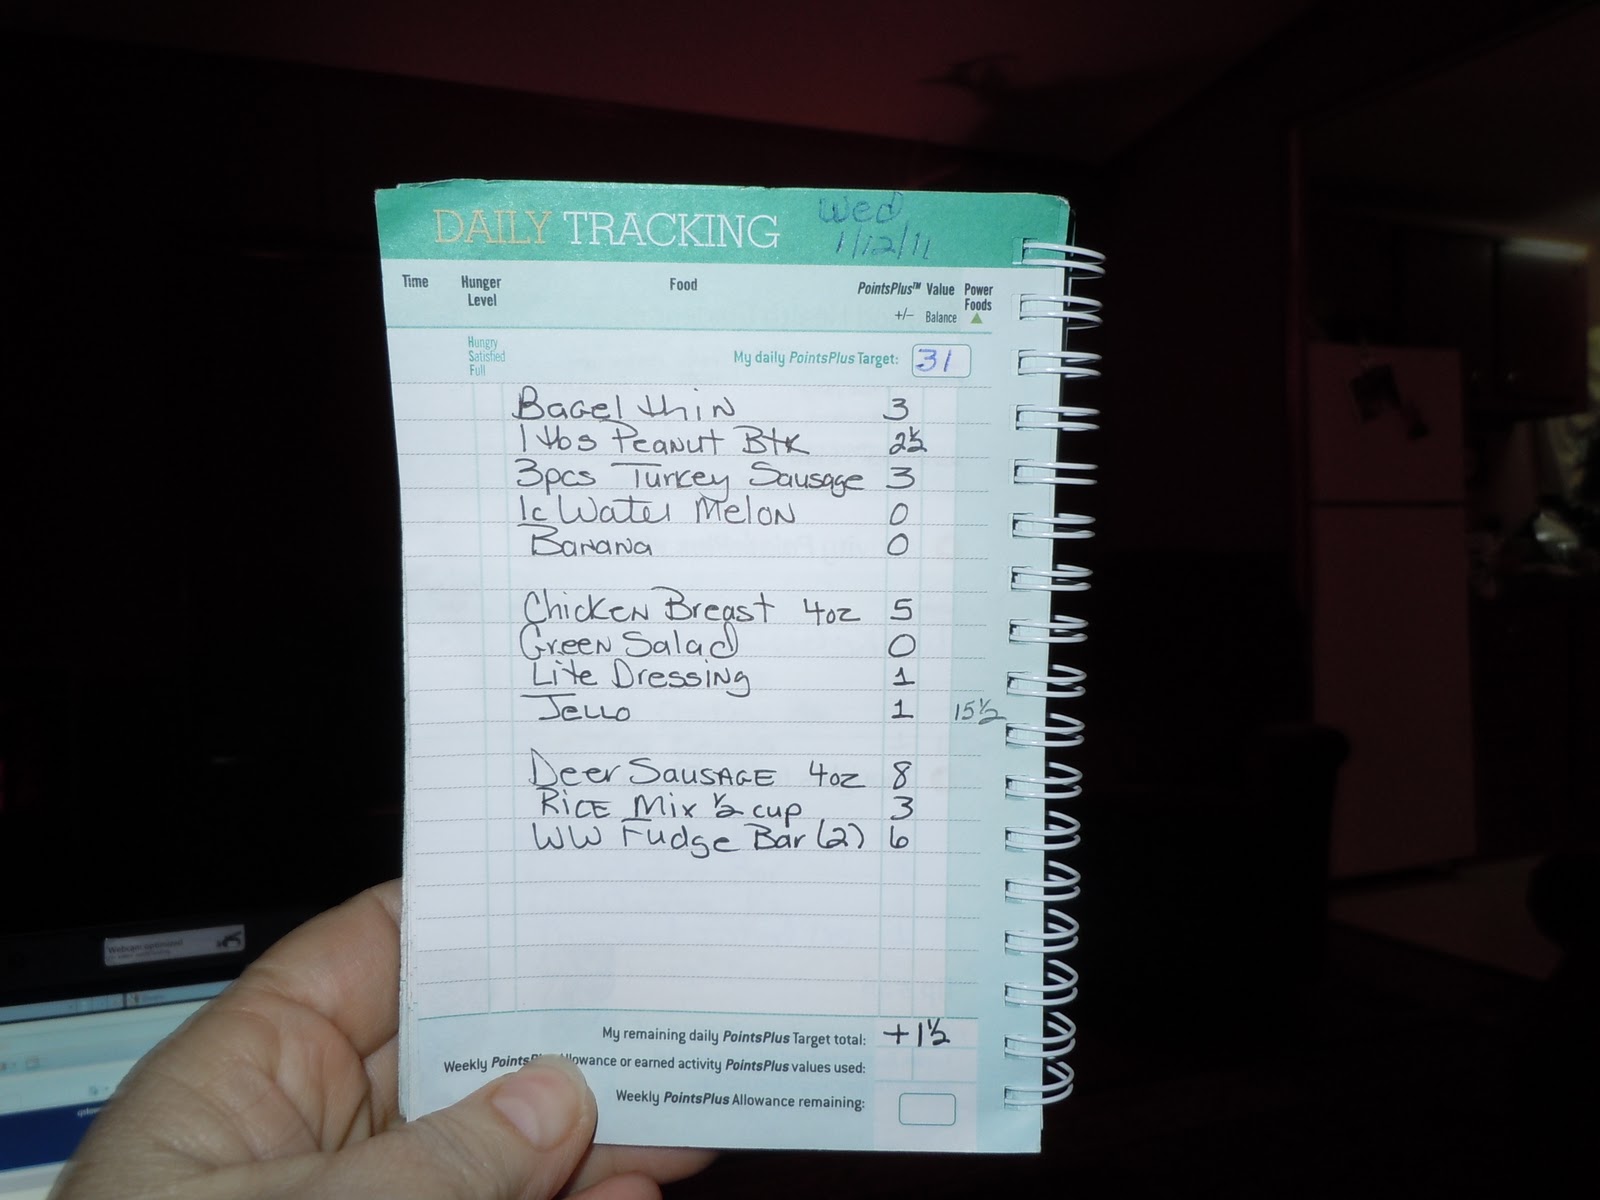 DAILY TRACKING
Wed
1/12/11
Time Hunger Level Food PointsPlus™ Value +/– Balance Power Foods
Hungry
Satisfied
Full
My daily PointsPlus Target: 31
Bagel thin 3
1 tbs Peanut Btr 2½
3pcs Turkey Sausage 3
1c Water Melon 0
Banana 0
Chicken Breast 4oz 5
Green Salad 0
Lite Dressing 1
Jello 1 15½
Deer Sausage 4oz 8
Rice Mix ½ cup 3
WW Fudge Bar (2) 6
My remaining daily PointsPlus Target total: +1½
Weekly Allowance or earned activity PointsPlus values used:
Weekly PointsPlus Allowance remaining:
Webcam optimized